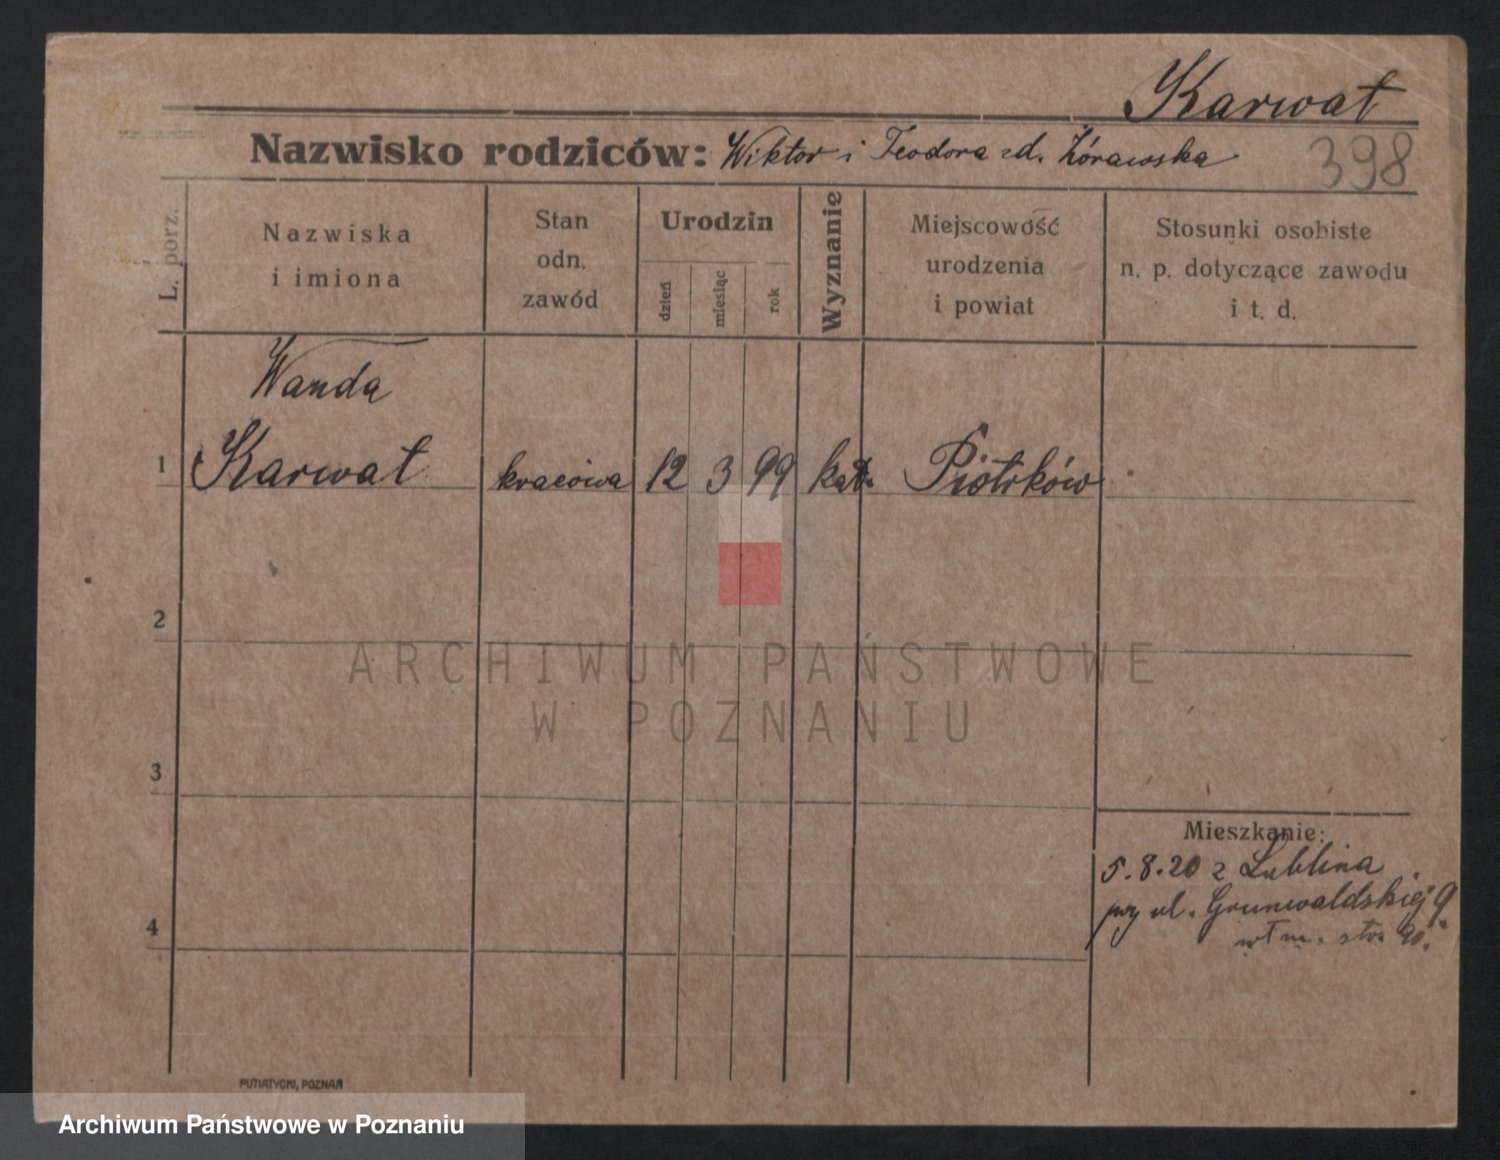 Karwat
Nazwisko rodziców: Wiktor i Teodora zd. Żórawska
398
L. porz.
Nazwiska
i imiona
Stan
odn.
zawód
Urodzin
dzień
miesiąc
rok
Wyznanie
Miejscowość
urodzenia
i powiat
Stosunki osobiste
n. p. dotyczące zawodu
i t. d.
Wanda
1 Karwat krawcowa 12 3 99 kat. Piotrków
2
ARCHIWUM PAŃSTWOWE
W POZNANIU
3
Mieszkanie:
5.8.20 z Lublina
przy ul. Grunwaldskiej 9
4
PUTIATYCKI, POZNAŃ
Archiwum Państwowe w Poznaniu